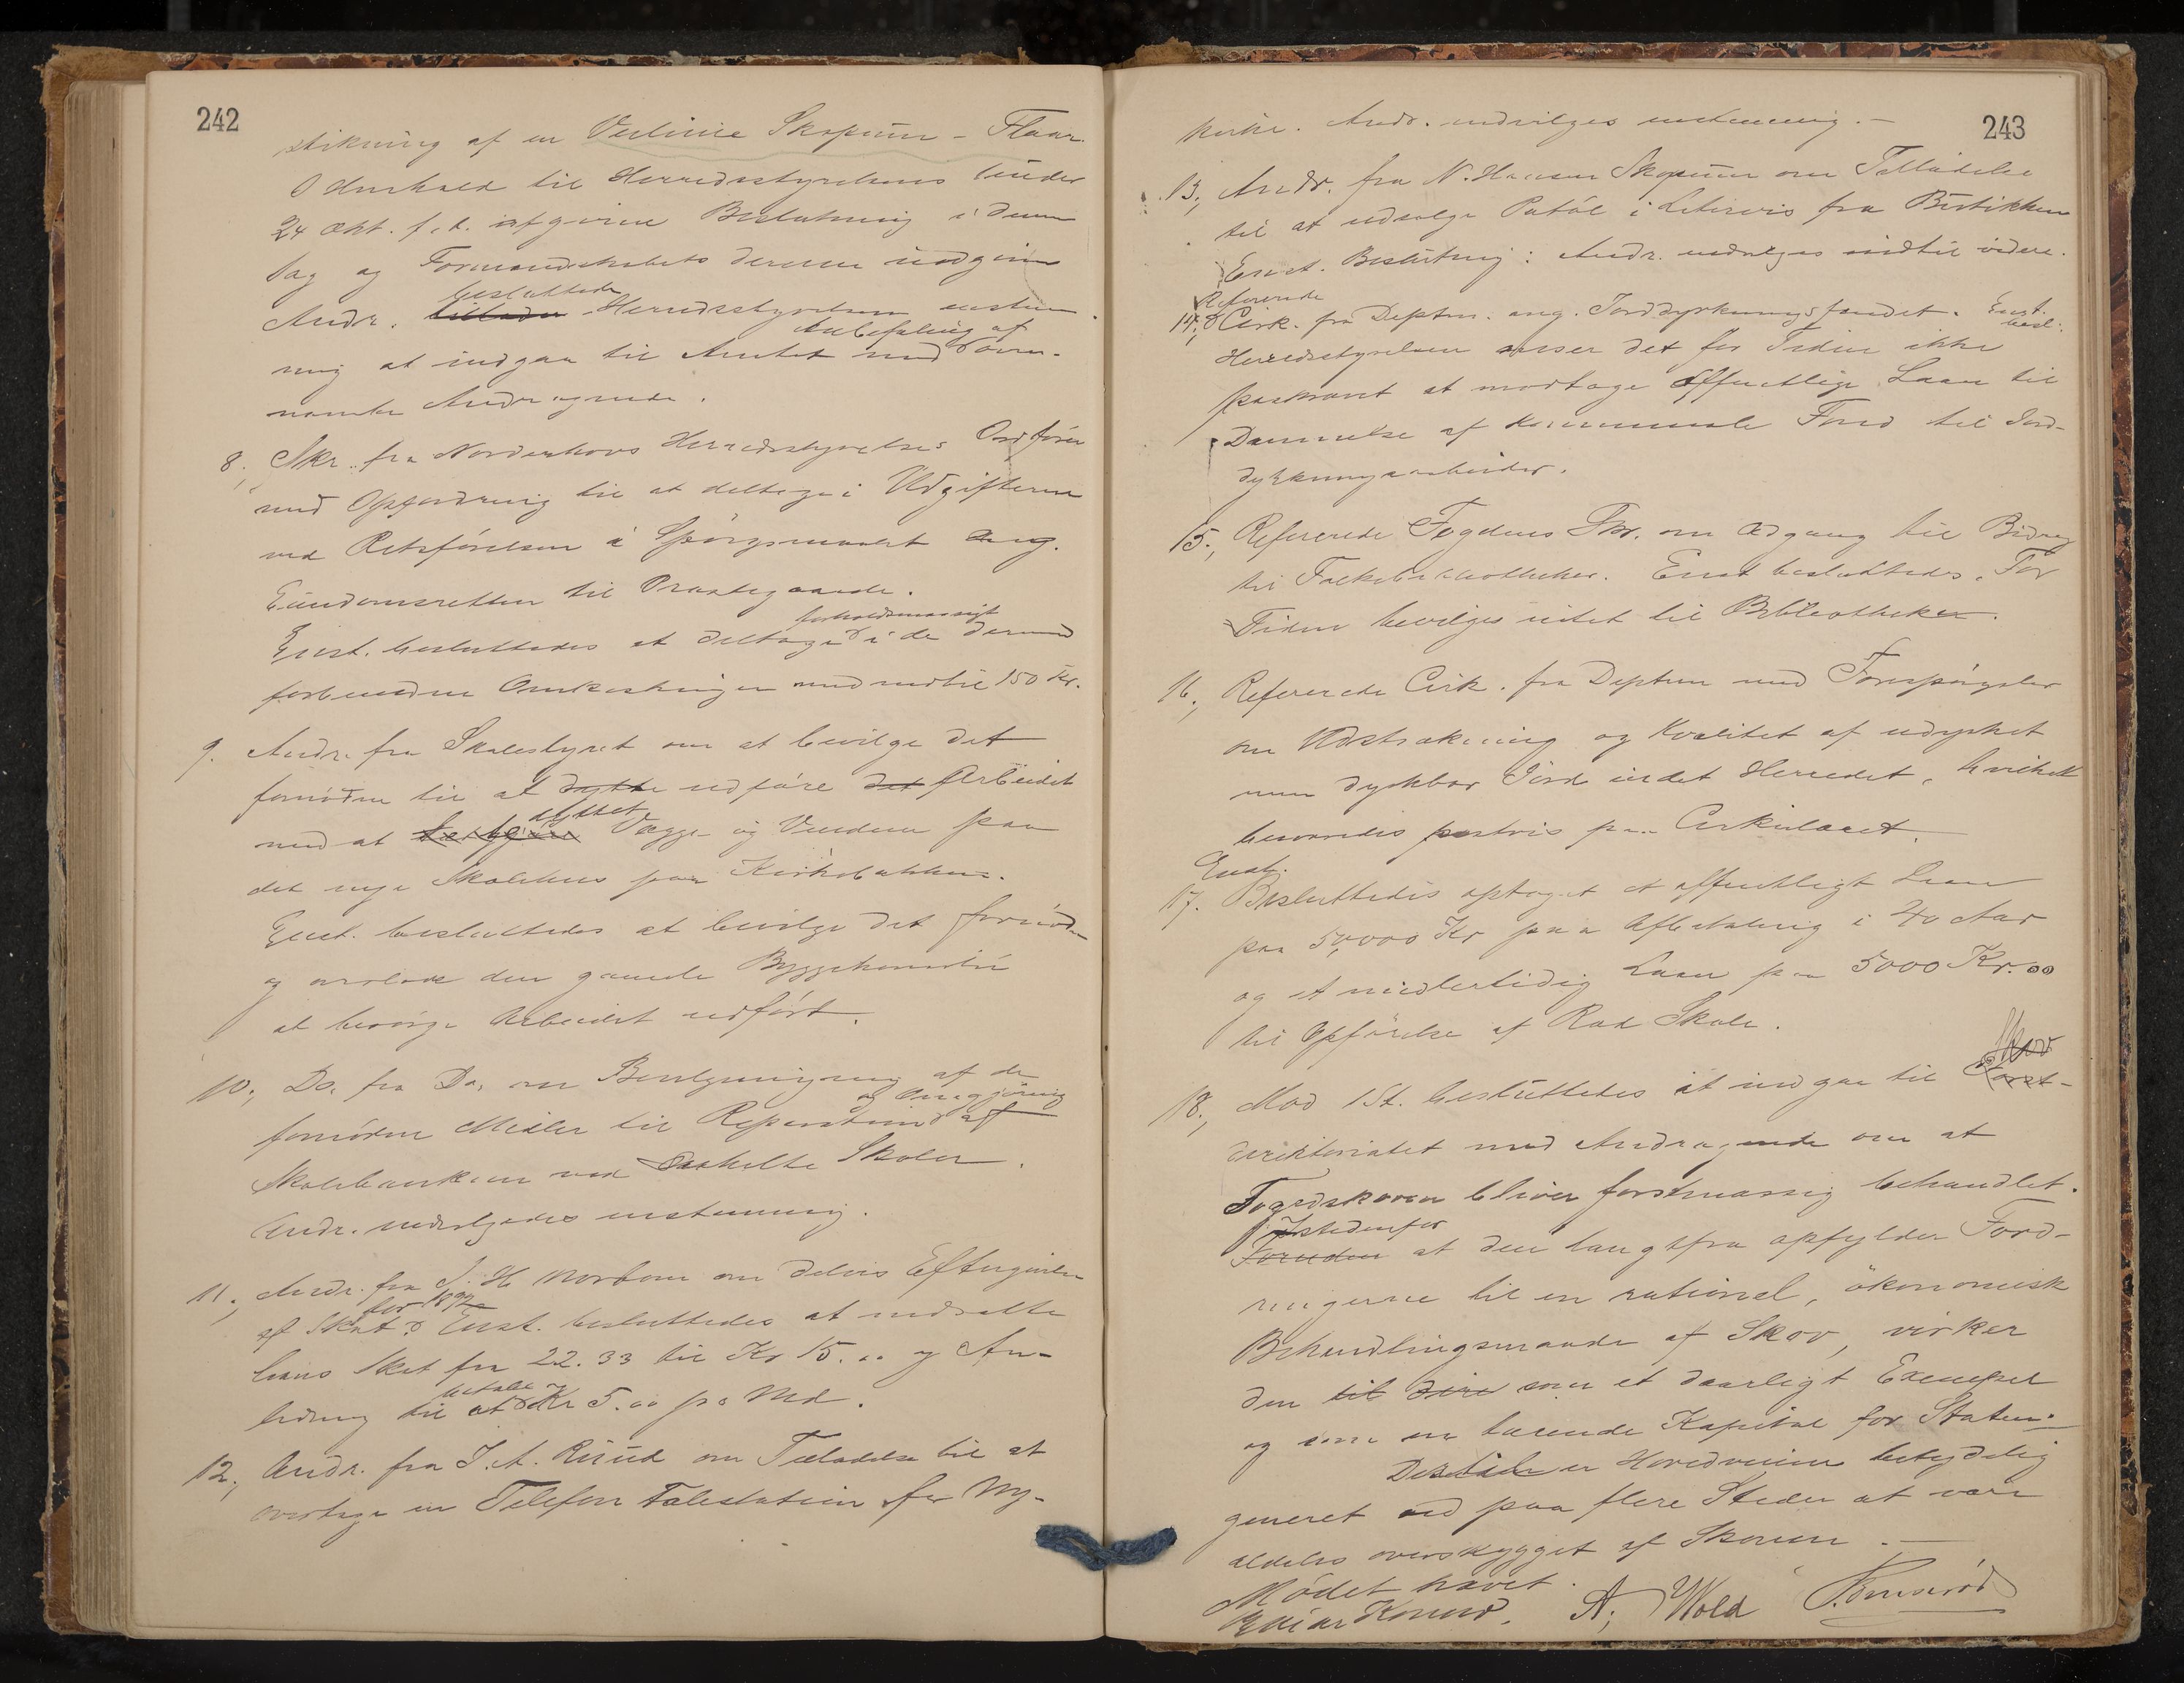 242
stikning af en Veilinie Skopum - Flaar.
I Henhold til Herredsstyrelsens under
24 Okt. f. A. afgivne Beslutning i denne
Sag og Formandskabets derom indgivne
Andr. besluttede Herredsstyrelsen enstem
ning at indgaa til Amtet med Anbefaling af oven-
nævnte Andragende.
8. Skr. fra Norderhovs Herredsstyrelses Ordfører
med Opfordring til at deltage i Udgifterne
ved Retsførelsen i Spørgsmaalet ang.
Eiendomsretten til Præstegaarde.
Enst. besluttedes at deltage forholdsmæssigt i de dermed
forbundne Omkostninger med indtil 150 Kr.
9. Andr. fra Skolestyret om at bevilge det
fornødne til at udføre Arbeidet
med at Vægge og Vinduer paa
det nye Skolehus paa Kirkebakken.
Enst. besluttedes at bevilge det fornødne
og anmode den gamle Byggekomite
at besørge Arbeidet udført.
10., Do. fra Do. om Bevilgning af de
fornødne Midler til Reparation og Omgjøring af
Skolebænkene ved Skoler.
Andr. indvilgedes enstemmig.
11., Andr. fra J. H. Morbom om delvis Eftergivelse
af Skat for 1892. Enst. besluttedes at nedsætte
hans Skat fra 22.33 til Kr 15.00 og An-
ledning til at betale Kr 5.00 pr Md.
12., Andr. fra J. A. Ruud om Tilladelse til at
overtage en Telefon Talestation for Ny-
243
kirke. Andr. indvilges enstemmig. —
13., Andr. fra N. Hansen Skopum om Tilladelse
til at udsælge Putöl i Litervis fra Butikken
Enst. Beslutning: Andr. indvilges indtil videre.
14., Refererede Cirk. fra Deptm. ang. Jorddyrkningsfondet. Enst. besl.
Herredsstyrelsen anser det for Tiden ikke
paakrævet at modtage offentlige Laan til
Dannelse af kommunale Fond til Jord-
dyrkningsarbeider.
15., Refererede Fogdens Skr. om Adgang til Bidrag
til Folkebibliotheker. Enst besluttedes. For
Tiden bevilges intet til Bibliotheker.
16., Refererede Cirk. fra Deptm med Forespørgsler
om Udstrækning og Kvalitet af udyrket
men dyrkbar Jord indet Herredet, hvilket
besvaredes paa Cirkulæret.
17. Enst. Besluttedes optaget et offentligt Laan
paa 5,000 Kr paa Afbetaling i 40 Aar
og et midlertidig Laan paa 5000 Kr. 00
til Opførelse af Rød Skole.
18., Mod 1 St. besluttedes at indgaa til Skov
direktoriatet med Andragende om at
Fogedskoven bliver forstmæssig behandlet.
Istedenfor at den langtfra opfylder Ford-
ringerne til en rationel, økonomisk
Behandlingsmaade af Skov, virker
den som et daarligt Exempel
og som en tærende Kapital for Staten.
Desuden er Hovedveien betydelig
generet ved paa flere Steder at være
aldeles overskygget af Skoven. —
Mødet hævet.
A. Wold